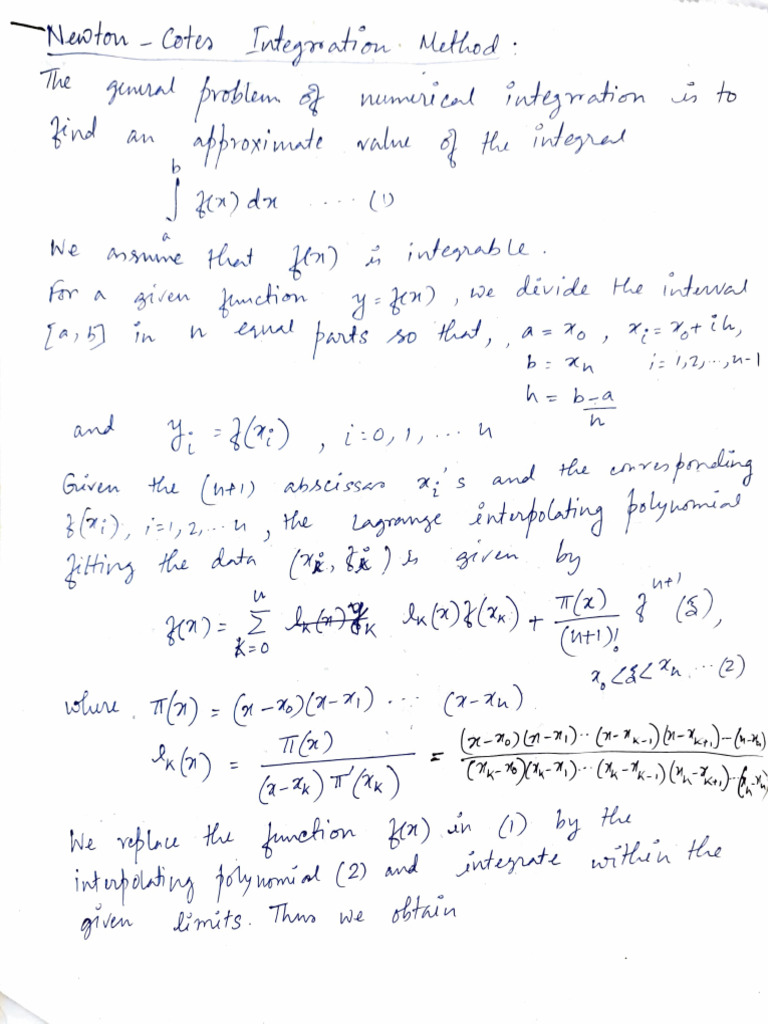 Newton - Cotes Integration Method :
The general problem of numerical integration is to
find an approximate value of the integral
∫_a^b f(x) dx ..... (1)
We assume that f(x) is integrable.
For a given function y = f(x), we divide the interval
[a, b] in n equal parts so that, a = x₀, xᵢ = x₀ + ih,
b = xₙ i = 1, 2, ..., n-1
h = (b-a)/n
and yᵢ = f(xᵢ), i = 0, 1, ... n
Given the (n+1) abscissas xᵢ's and the corresponding
f(xᵢ), i = 1, 2, ... n, the Lagrange interpolating polynomial
fitting the data (xᵢ, fᵢ) is given by
f(x) = Σ_{k=0}^{n} l_k(x) f(x_k) + π(x)/(n+1)! f^{n+1}(ξ),
x₀ < ξ < xₙ ... (2)
where π(x) = (x-x₀)(x-x₁) ... (x-xₙ)
l_k(x) = π(x)/((x-x_k) π'(x_k)) = ((x-x₀)(x-x₁)..(x-x_{k-1})(x-x_{k+1})--(x-xₙ))/((x_k-x₀)(x_k-x₁)...(x_k-x_{k-1})(x_k-x_{k+1})..(x_k-xₙ))
We replace the function f(x) in (1) by the
interpolating polynomial (2) and integrate within the
given limits. Thus we obtain